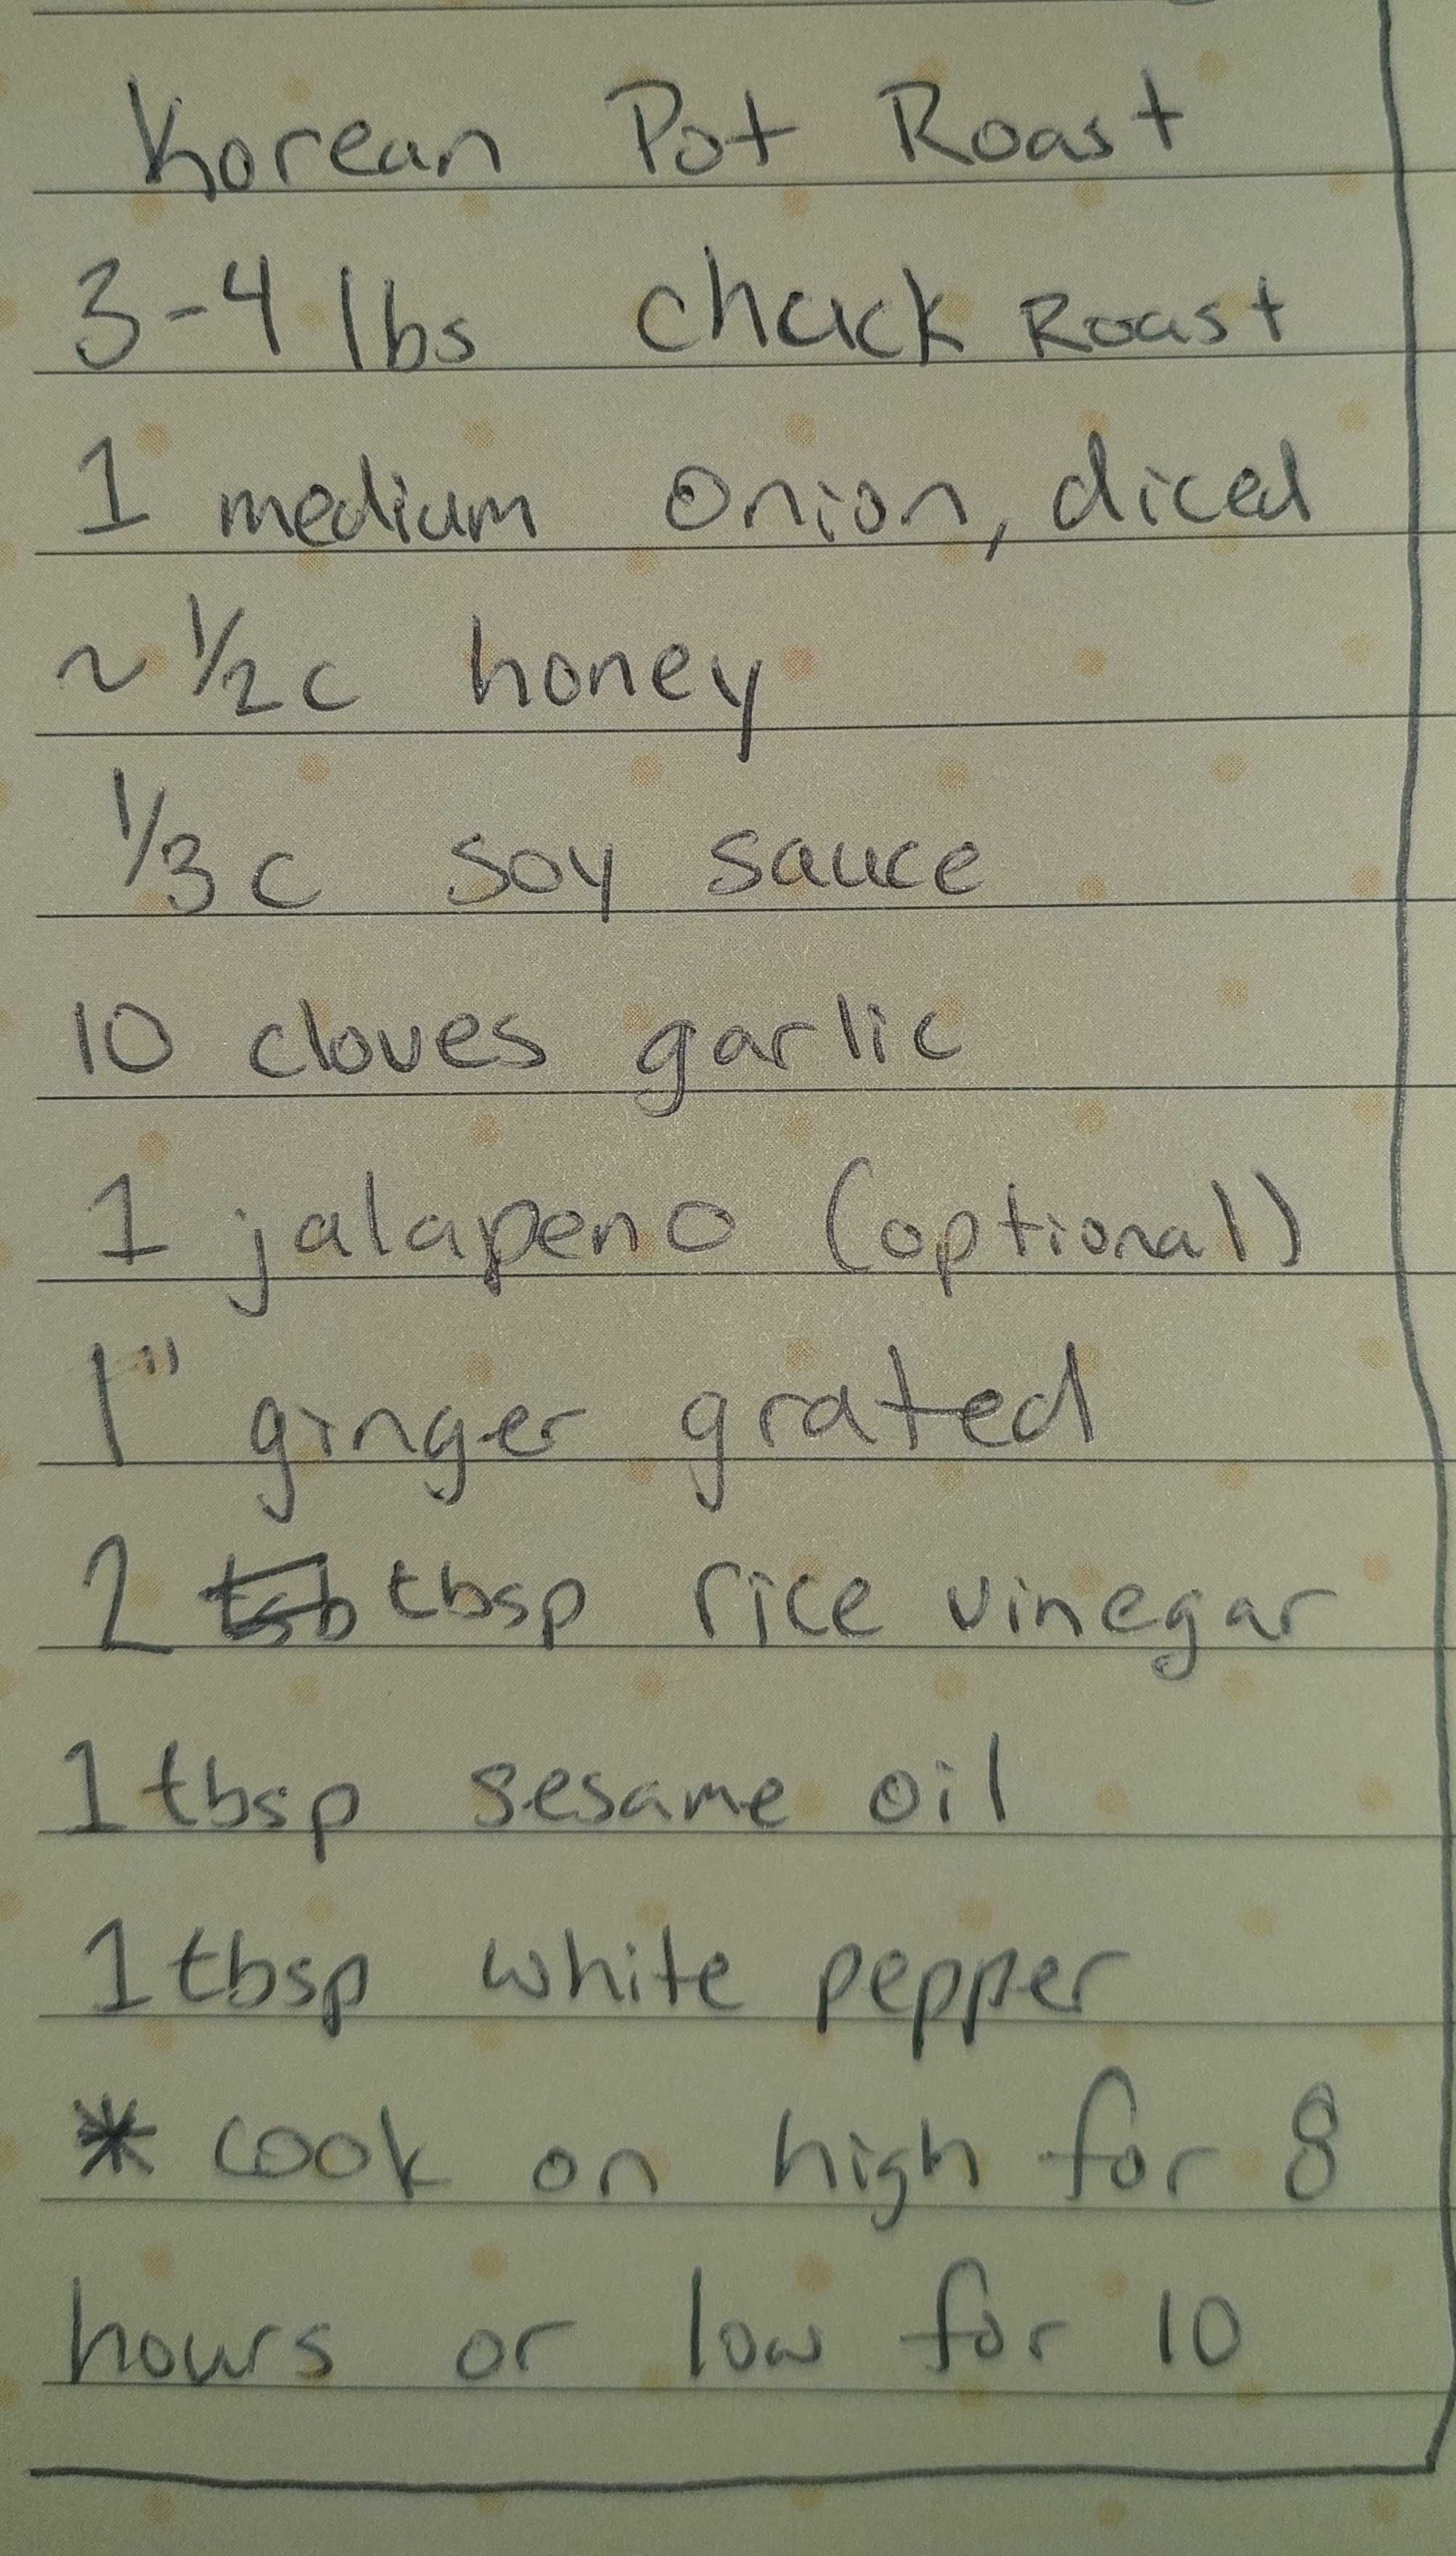 Korean Pot Roast
3-4 lbs chuck Roast
1 medium onion, diced
~ 1/2 c honey
1/3 c soy sauce
10 cloves garlic
1 jalapeno (optional)
1" ginger grated
2 tsb tbsp rice vinegar
1 tbsp sesame oil
1 tbsp white pepper
* cook on high for 8
hours or low for 10